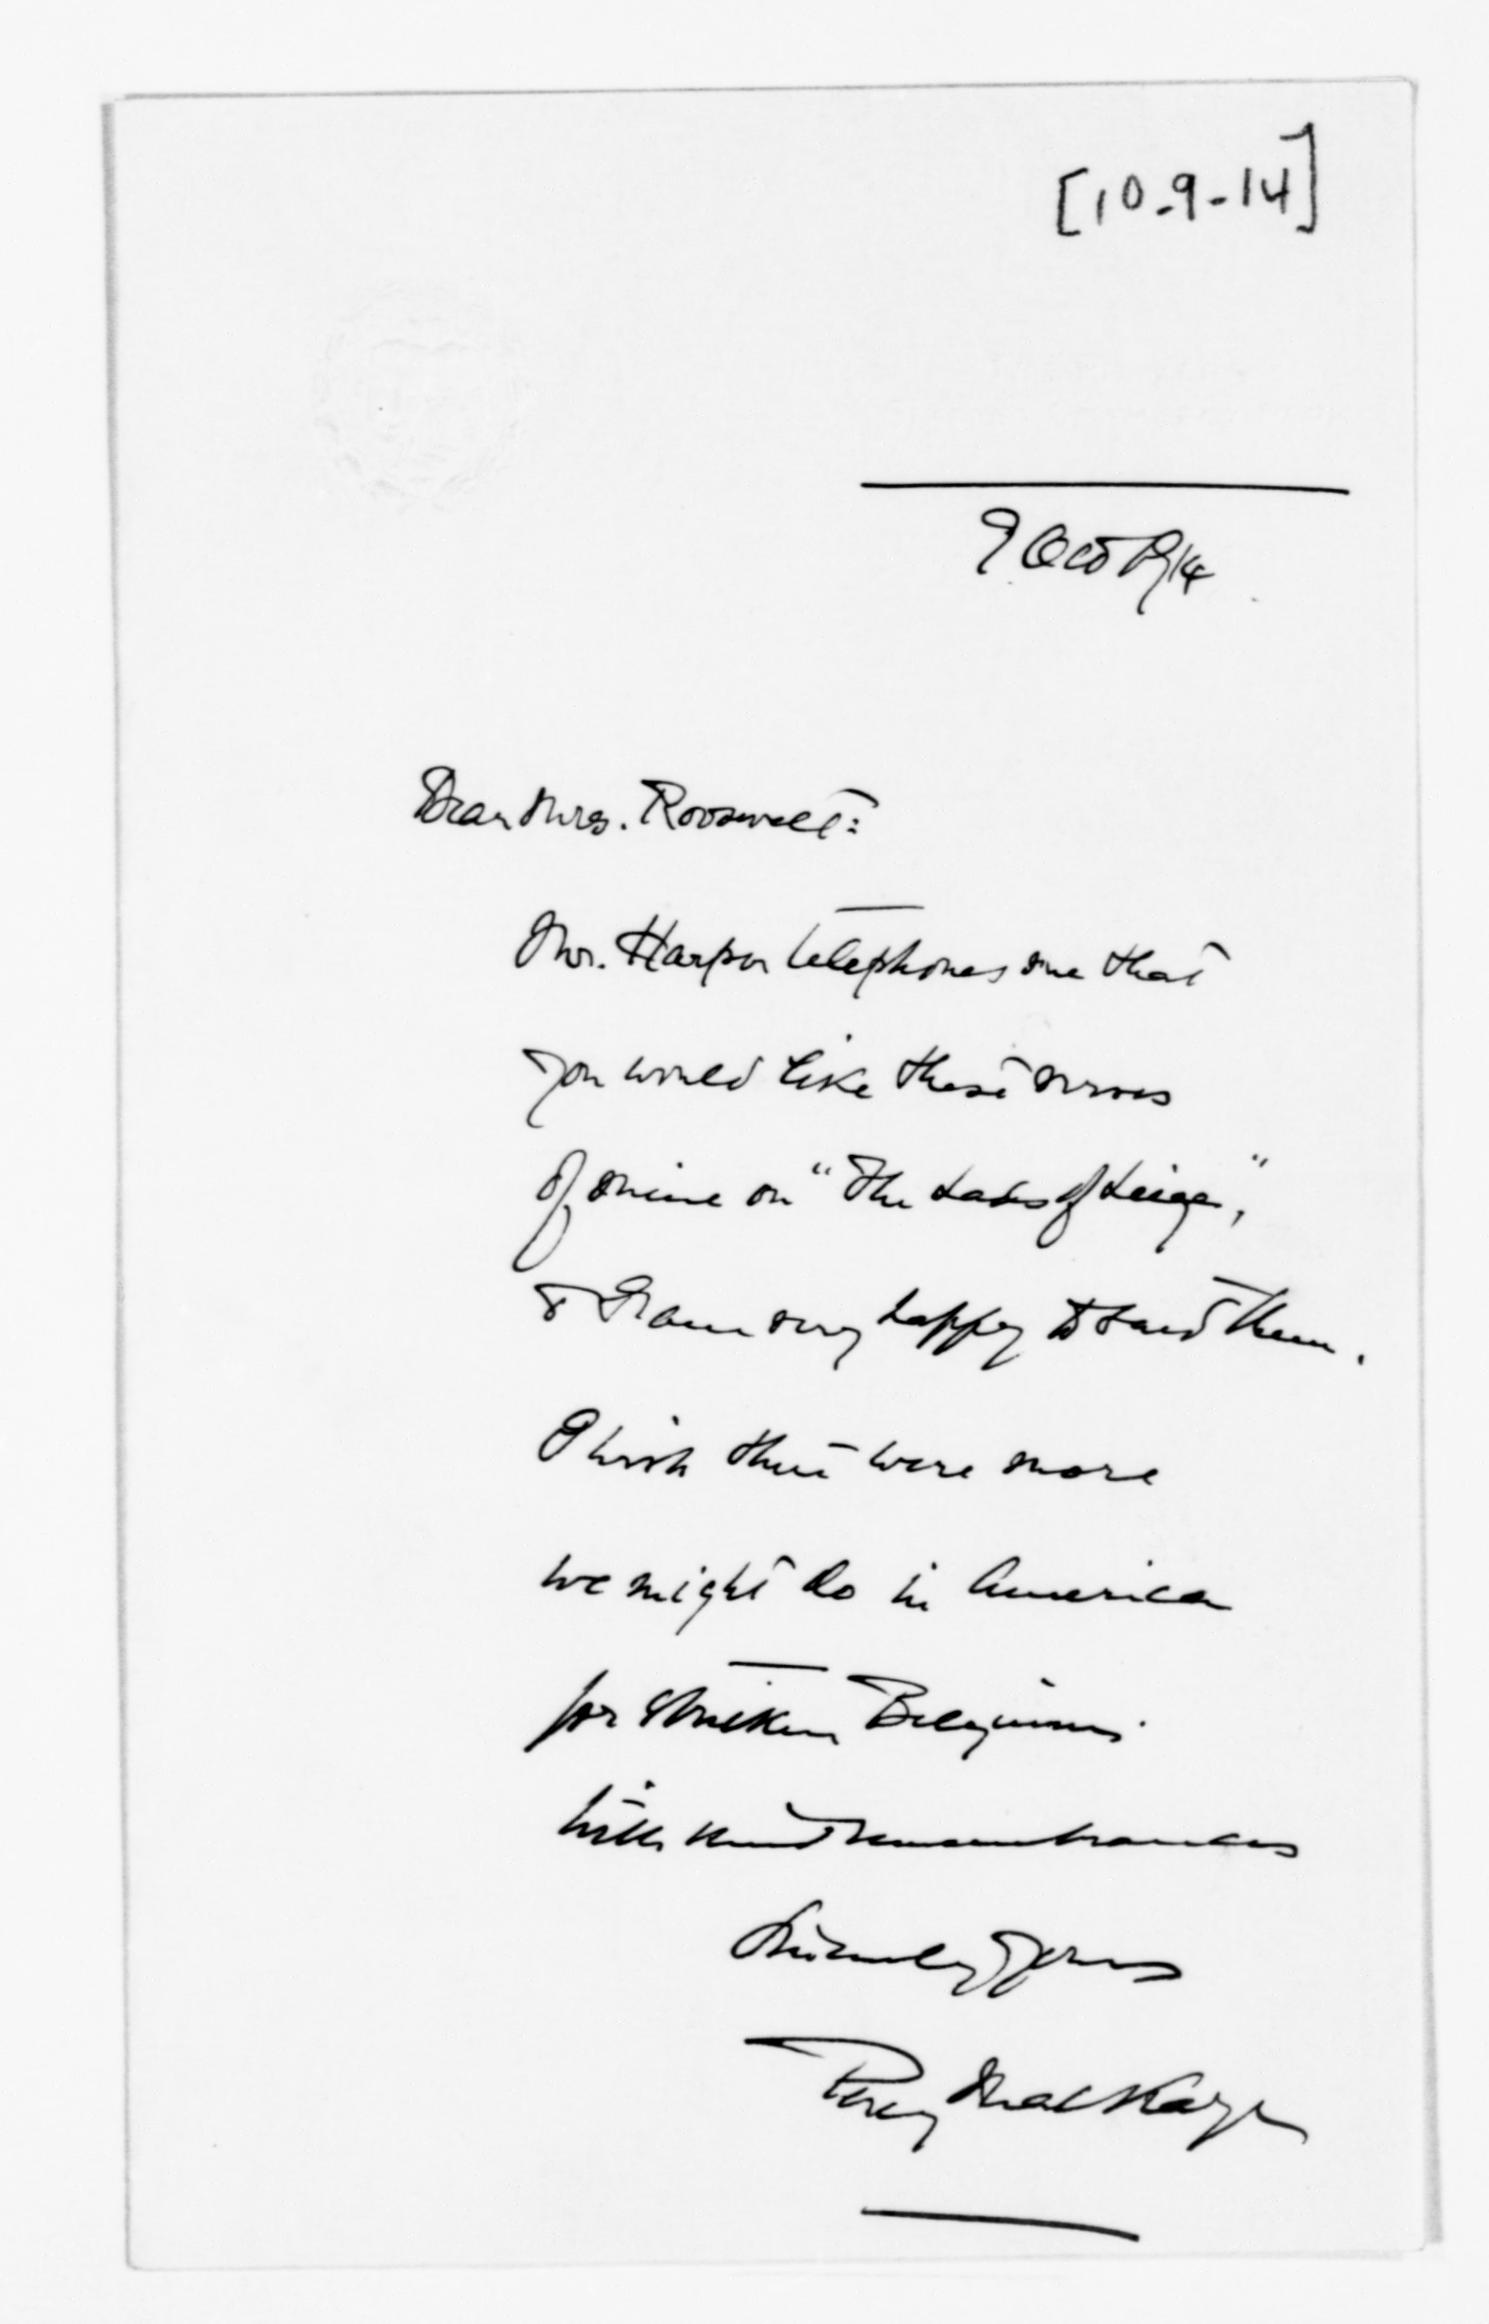 [10-9-14]
9 Oct 1914
Dear Mrs. Roosevelt:
Mr. Harper telephones me that
you would like these verses
of mine on "The Lads of Liège,"
& I am very happy to send them.
I wish there were more
we might do in America
for stricken Belgium.
With kind remembrances
Sincerely yours
Percy MacKaye